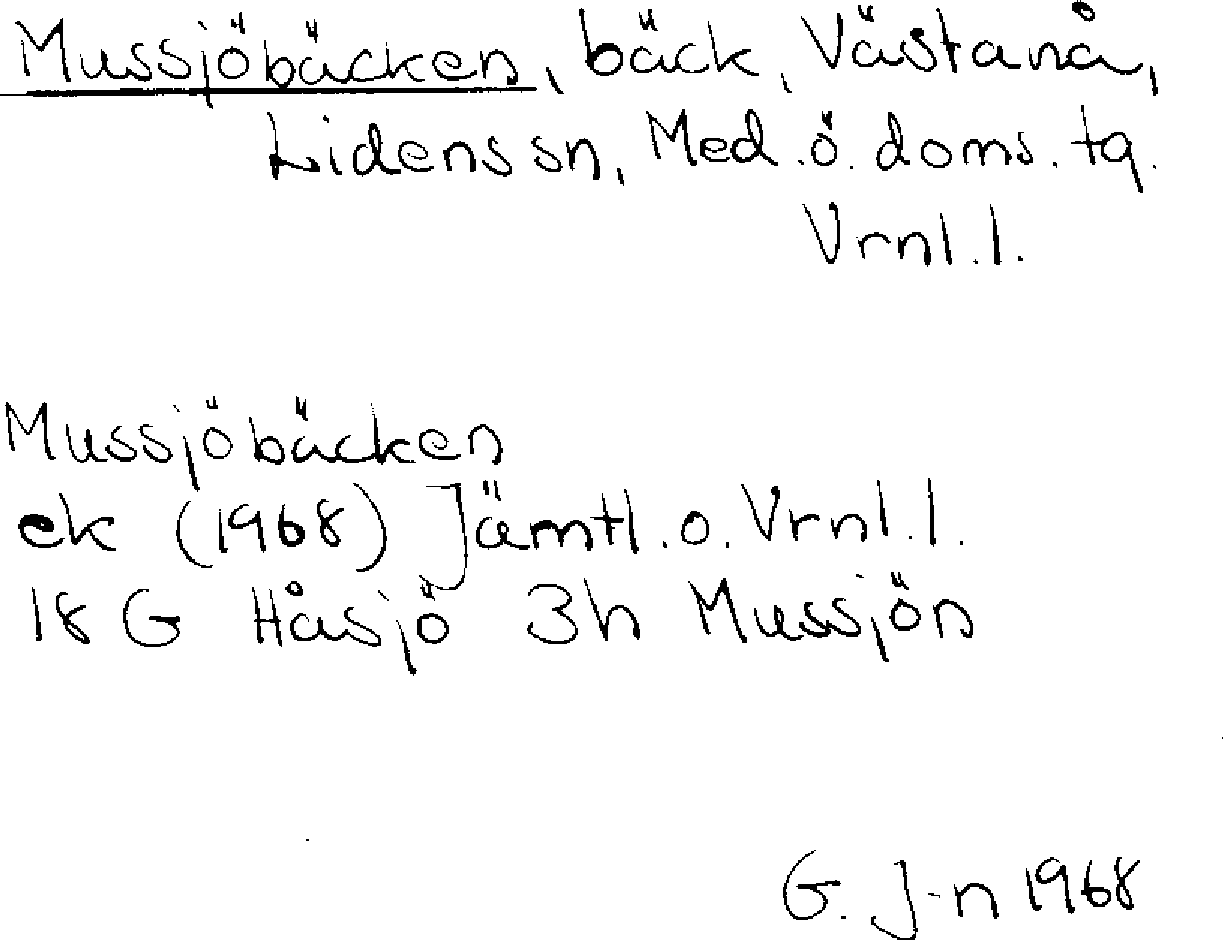 Mussjöbäcken, bäck, Västanå,
Lidens sn, Med.ö. doms. tg.
Vrnl.l.
Mussjöbäcken
ek (1968) Jämtl.o.Vrnl.l.
18 G Håsjö 3h Mussjön
G. J-n 1968